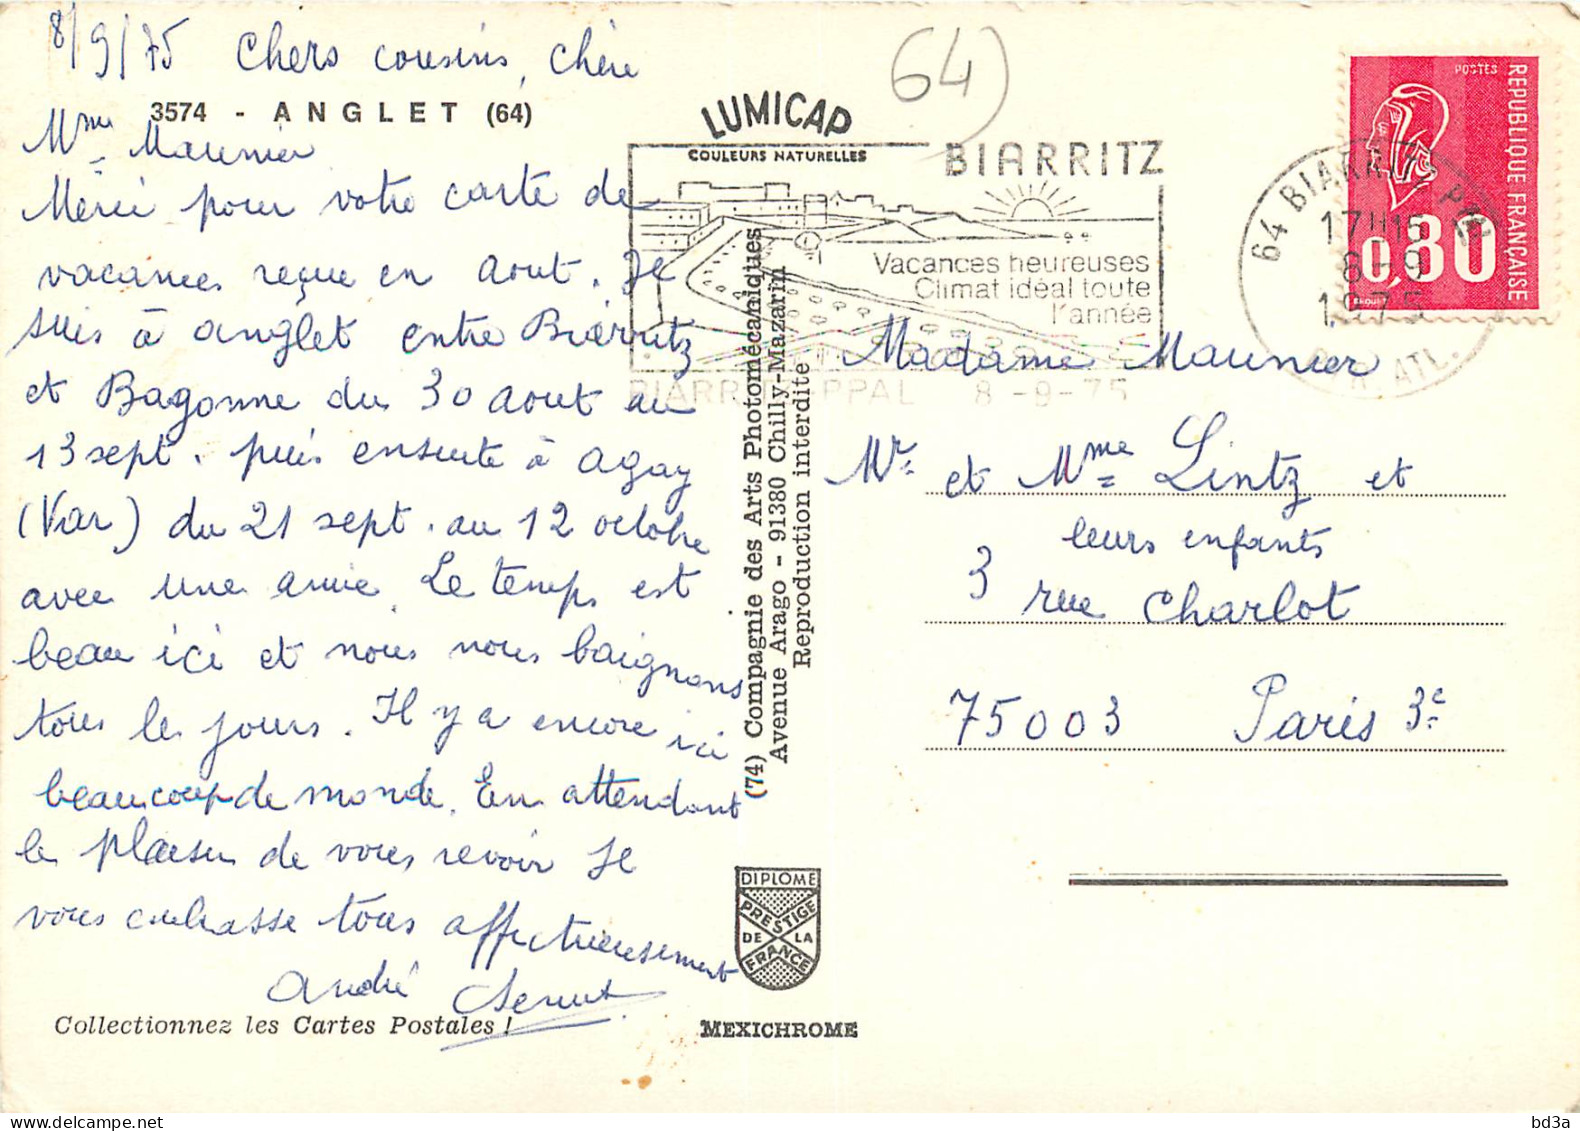 8/9/75 Chers cousins, Chère
3574 - ANGLET (64)
Mme Maunier
Merci pour votre carte de
vacances reçue en aout. Je
suis à anglet entre Biarritz
et Bayonne du 30 aout au
13 sept. puis ensuite à agay
(Var) du 21 sept. au 12 octobre
avec une amie. Le temps est
beau ici et nous nous baignons
tous les jours. Il y a encore ici
beaucoup de monde. En attendant
le plaisir de vous revoir Je
vous embrasse tous affectueusement
andré
Collectionnez les Cartes Postales !
64)
LUMICAP
COULEURS NATURELLES
BIARRITZ
Vacances heureuses
Climat idéal toute
l'année
BIARRITZ-PPAL 8-9-75
(74) Compagnie des Arts Photomécaniques
Avenue Arago - 91380 Chilly-Mazarin
Reproduction interdite
DIPLOME
PRESTIGE
DE LA
FRANCE
MEXICHROME
POSTES
REPUBLIQUE FRANÇAISE
0,80
64 BIARRITZ PPAL
17H15
8-9
1975
PYR. ATL.
Madame Maunier
Mr et Mme Lintz et
leurs enfants
3 rue Charlot
75003 Paris 3e
bd3a